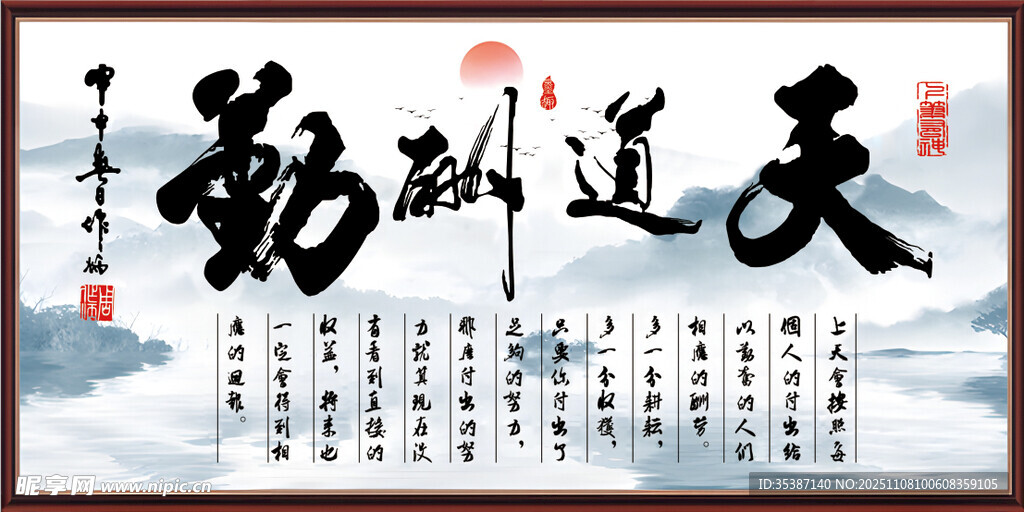 天道酬勤
上天會按照每
個人的付出給
以勤奮的人們
相應的酬勞。
多一分耕耘，
多一分收獲，
只要你付出了
足夠的努力，
那麼付出的努
力就算現在沒
有看到直接的
收益，將來也
一定會得到相
應的迴報。
昵享网 www.nipic.cn
ID:35387140 NO:20251108100608359105